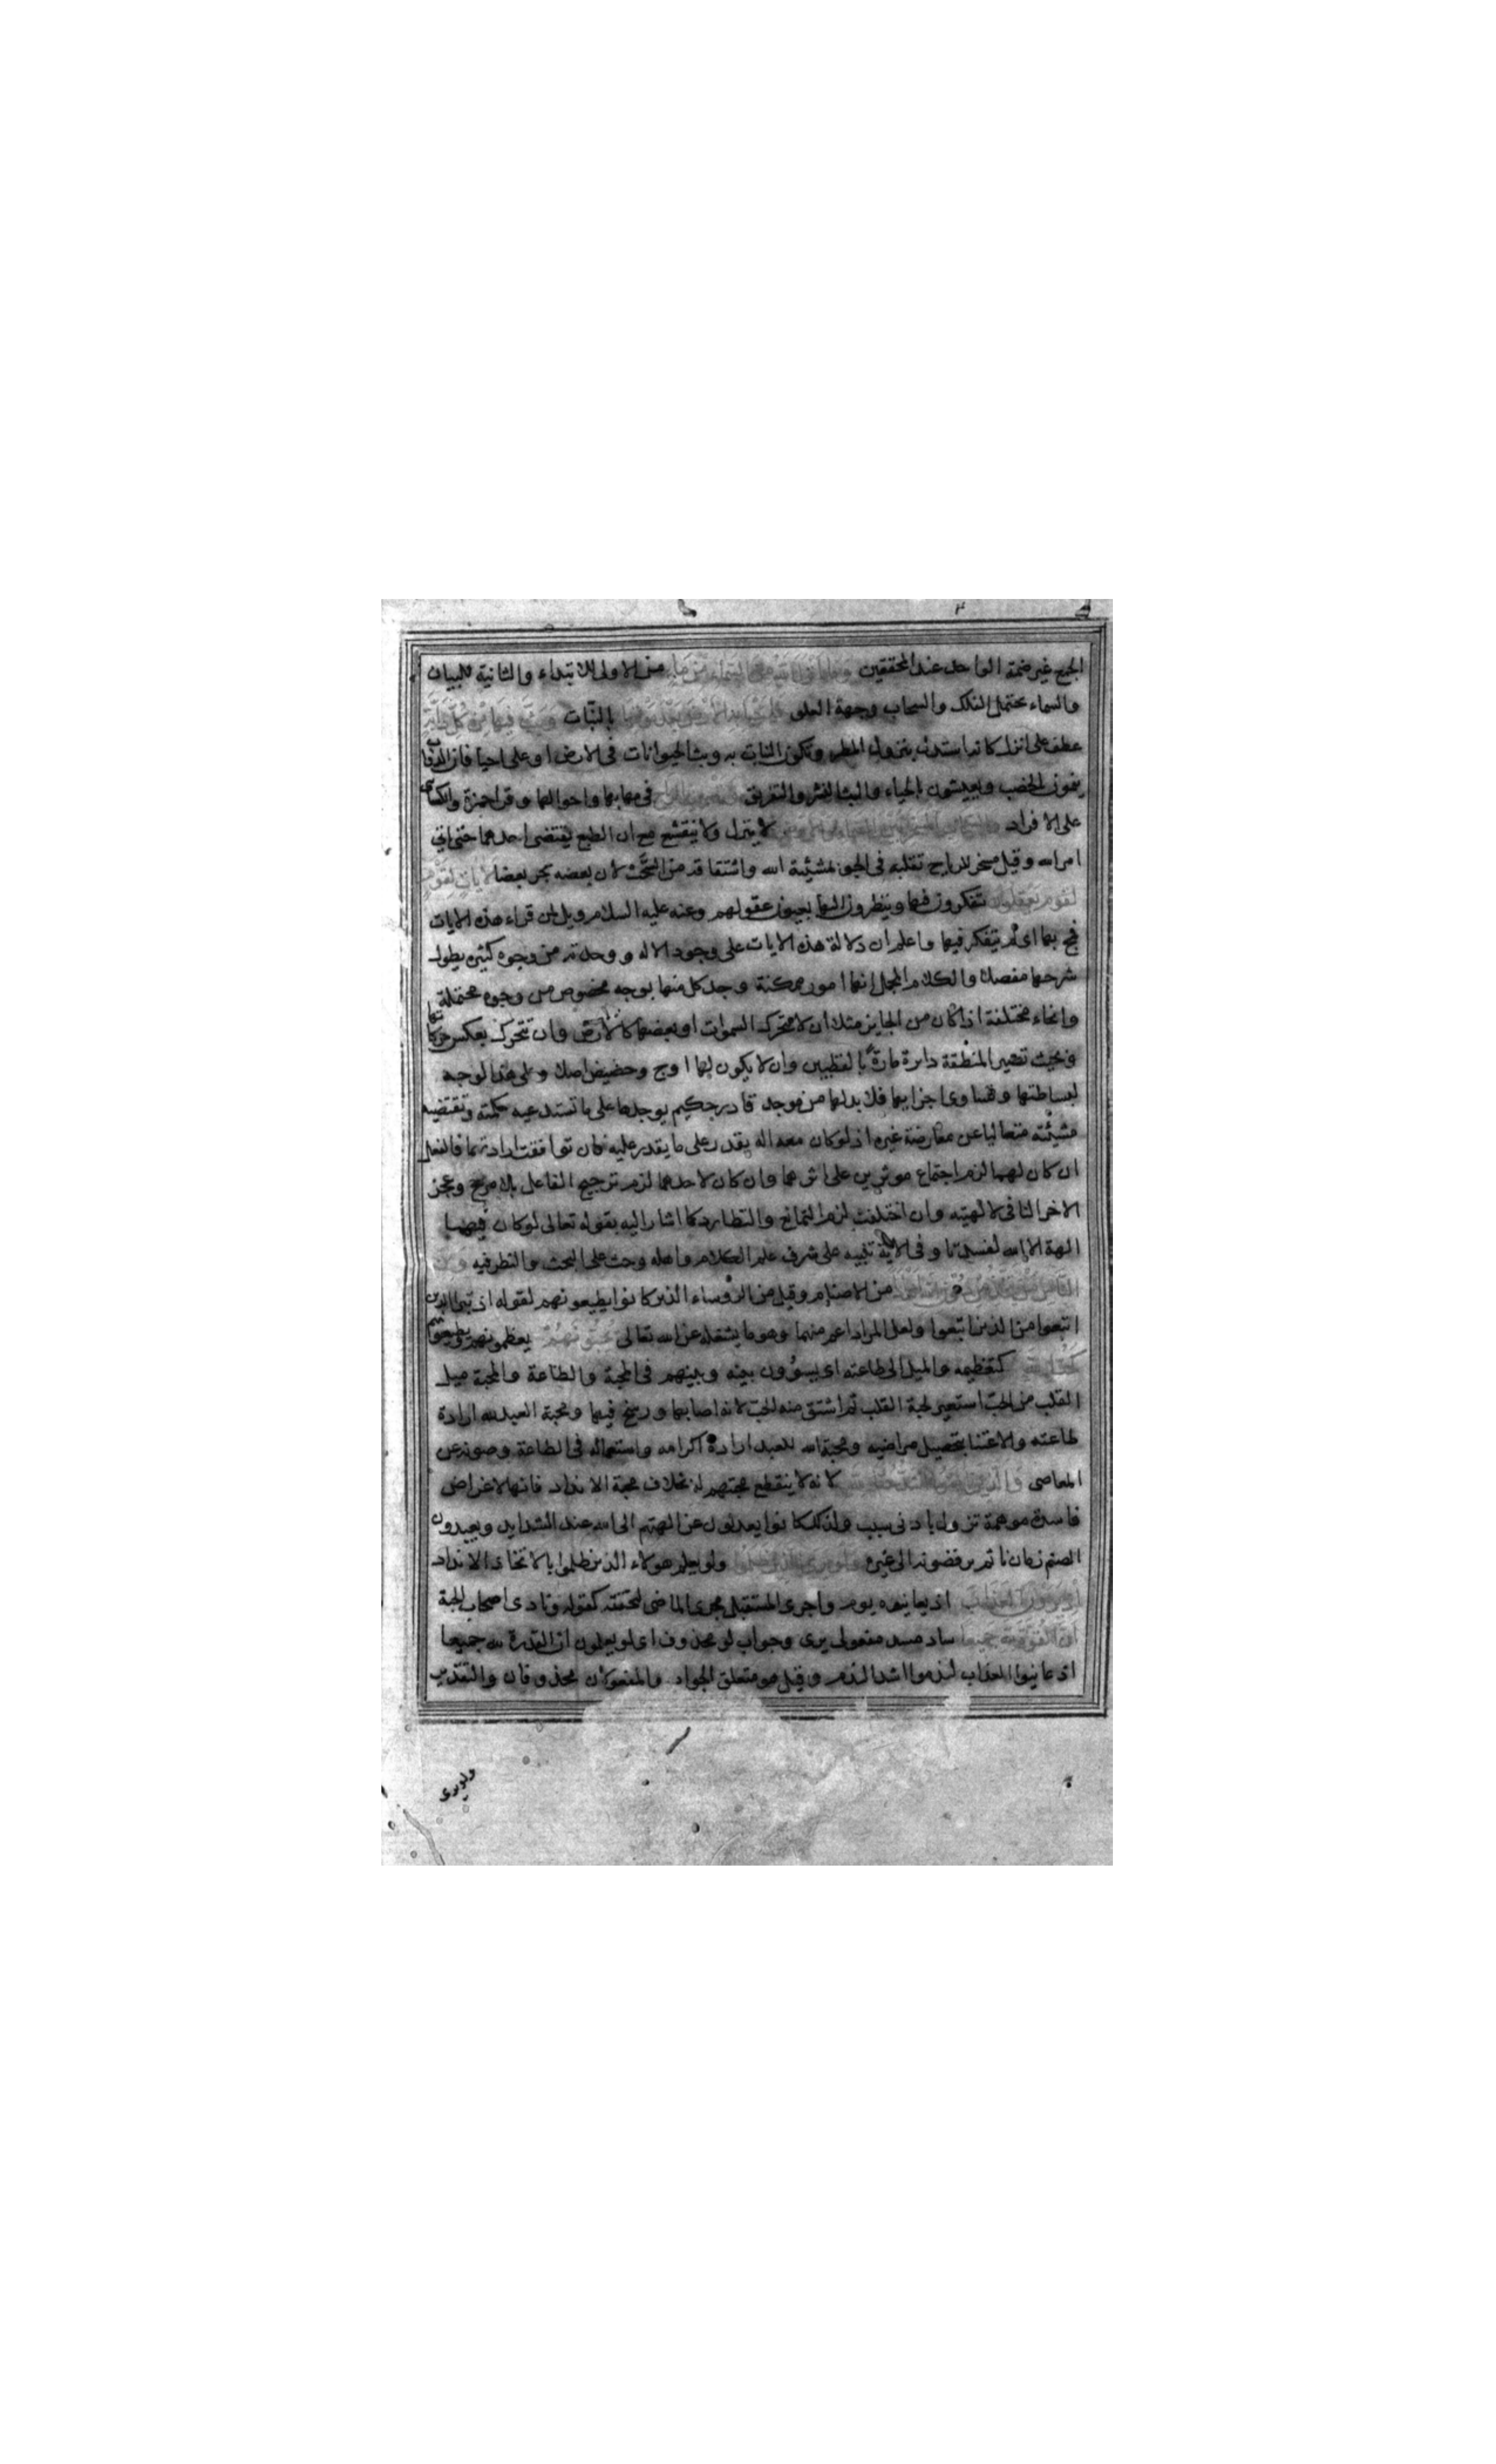 الجمع غير ضمة الواحد عند المحققين وما انزل الله من السماء من ماء من الاولى للابتداء والثانية للبيان
والسماء يحتمل الفلك والسحاب وجهة العلو فاحيا به الارض بعد موتها بالنبات وبث فيها من كل دابة
عطف على انزل كانه استدل بنزول المطر وتكون النبات به وبث الحيوانات في الارض او على احيا فان الدواب
ينمون بالخصب ويعيشون بالحياء والبث النشر والتفريق وتصريف الرياح في مهابها واحوالها وقرا حمزة والكسائي
على الافراد والسحاب المسخر بين السماء والارض لا ينزل ولا ينقشع مع ان الطبع يقتضي احدهما حتى ياتي
امر الله وقيل مسخر للرياح تقلبه في الجو بمشيئة الله واشتقاقه من السحب لان بعضه يجر بعضا لايات لقوم
لقوم يعقلون يتفكرون فيها وينظرون اليها بعيون عقولهم وعنه عليه السلام ويل لمن قراء هذه الايات
فمج بها اي لم يتفكر فيها واعلم ان دلالة هذه الايات على وجود الاله ووحدته من وجوه كثيرة يطول
شرحها مفصلا والكلام المجمل انها امور ممكنة وجد كل منها بوجه مخصوص من وجوه محتملة
وانحاء مختلفة اذ كان من الجايز مثلا ان لا تتحرك السموات او بعضها كالارض وان تتحرك بعكس حركاتها
وبحيث تصير المنطقة دايرة مارة بالقطبين وان لا يكون لها اوج وحضيض اصلا وعلى هذا الوجه
لبساطتها وتساوي اجزايها فلا بد لها من موجد قادر حكيم يوجدها على ما تستدعيه حكمته وتقتضيه
مشيئته متعاليا عن معارضة غيره اذ لو كان معه اله يقدر على ما يقدر عليه فان توافقت ارادتهما فالفعل
ان كان لهما لزم اجتماع موثرين على اثر هما وان كان لاحدهما لزم ترجيح الفاعل بلا مرجح وعجز
الاخر النافي لالهيته وان اختلفت لزم التمانع والتطارد كما اشار اليه بقوله تعالى لو كان فيهما
الهة الا الله لفسدتا وفي الاية تنبيه على شرف علم الكلام واهله وحث على البحث والنظر فيه ومن
الناس من يتخذ من دون الله اندادا من الاصنام وقيل من الرؤساء الذين كانوا يطيعونهم لقوله اذ تبرا الذين
اتبعوا من الذين اتبعوا ولعل المراد اعم منهما وهو ما يشغله عن الله تعالى يحبونهم يعظمونهم ويطيعونهم
كحب الله كتعظيمه والميل الى طاعته اي يسوون بينه وبينهم في المحبة والطاعة والمحبة ميل
القلب من الحب استعير لحبة القلب ثم اشتق منه الحب لانه اصابها ورسخ فيها ومحبة العبد لله ارادة
طاعته والاعتنا بتحصيل مراضيه ومحبة الله للعبد ارادة اكرامه واستعماله في الطاعة وصونه عن
المعاصي والذين امنوا اشد حبا لله لانه لا ينقطع محبتهم له بخلاف محبة الانداد فانها لاغراض
فاسدة موهمة تزول بادنى سبب ولذلك كانوا يعدلون عن الهتهم الى الله عند الشدايد ويعبدون
الصنم زمانا ثم يرفضونه الى غيره ولو يرى الذين ظلموا ولو يعلم هولاء الذين ظلموا بالاتخاذ الانداد
اذ يرون العذاب اذ يعاينوه يوم واجرى المستقبل مجرى الماضي لتحققه كقوله ونادى اصحاب الجنة
ان القوة لله جميعا ساد مسد مفعولي يرى وجواب لو محذوف اي لو يعلمون ان القدرة لله جميعا
اذ عاينوا العذاب لندموا اشد الندم وقيل هو متعلق الجواب والمفعولان محذوفان والتقدير
ولو يرى